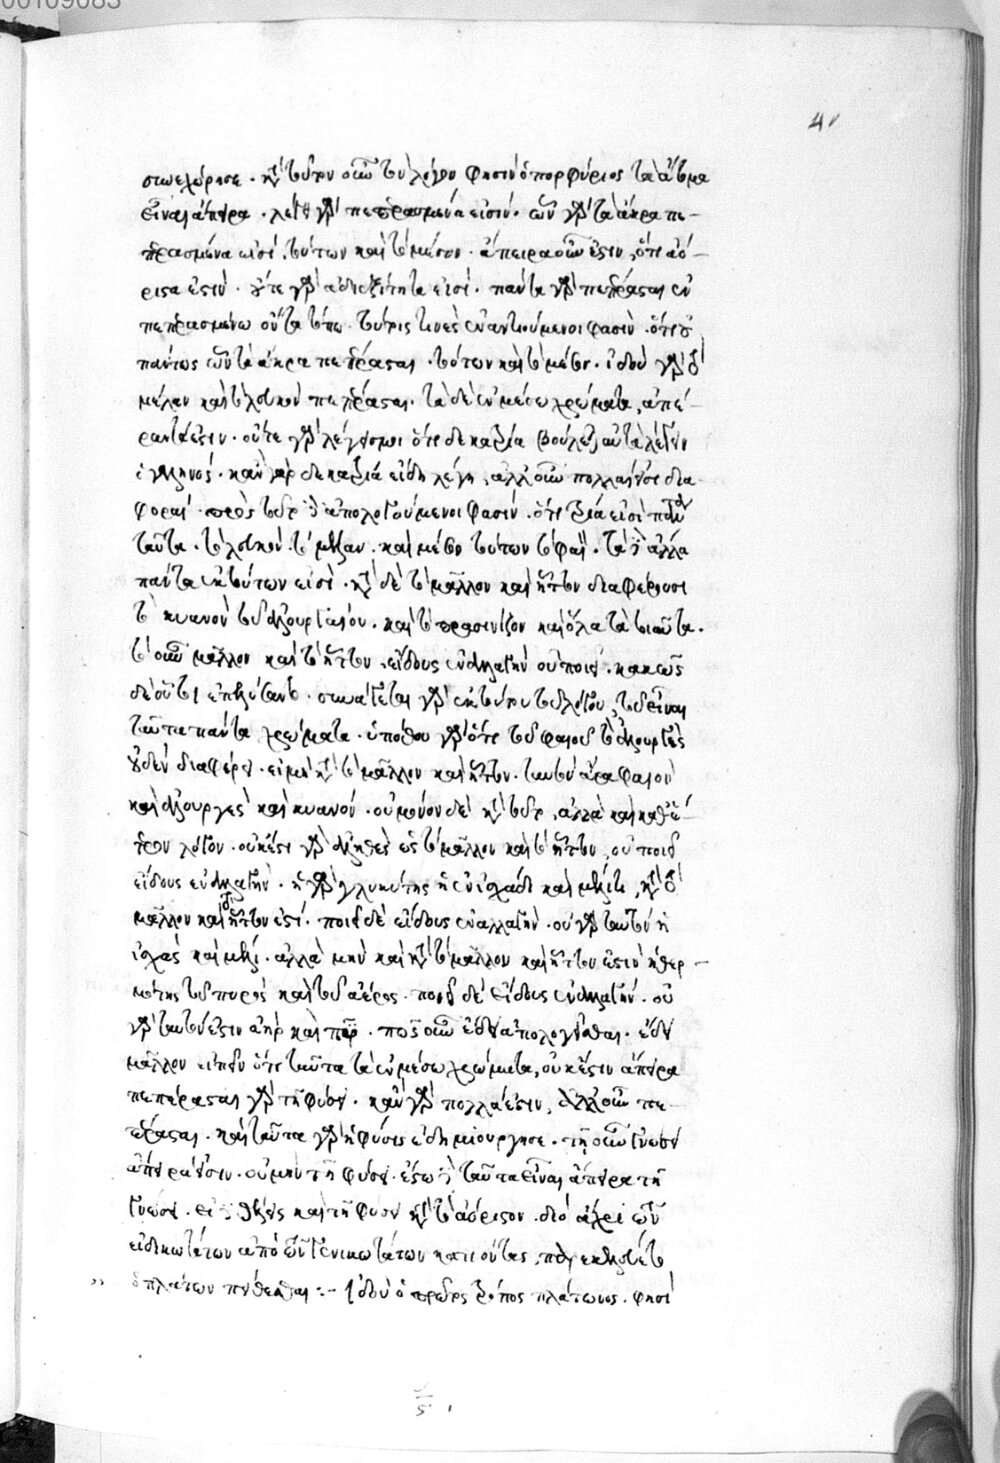 00109083
41
συνεχώρησε · κατὰ τοῦτον οὖν τὸν λόγον φησὶν ὁ πορφύριος τὰ ἄτομα
εἶναι ἄπειρα · λέγει γὰρ πεπερασμένα εἰσίν · ὧν γὰρ τὰ ἄκρα πε-
περασμένα εἰσί, τούτων καὶ τὸ μέσον · ἄπειρα οὖν ἐστιν, ὅτι ἀό-
ριστα ἐστιν · οὔτε γὰρ ἀδιεξίτητα εἰσί · πάντα γὰρ πεπέρασται ἐν
πεπερασμένω ὄντα τόπω · τούτοις τινὲς ἐναντιούμενοι φασὶν · ὅτι οὐ
πάντως ὧν τὰ ἄκρα πεπέρασται · τούτων καὶ τὸ μέσον · ἰδοὺ γὰρ τὸ
μέλαν καὶ τὸ λευκὸν πεπέρασται · τὰ δὲ ἐν μέσω χρώματα, ἀπέ-
ραντα ἐστιν · οὔτε γὰρ λέγουσιν ὅτι δεκατρία βούλεται αὐτὰ λέγειν
ὁ γαληνός · κἂν γὰρ δεκατρία εἴδη λέγη, ἀλλ' οὖν πολλαὶ τούτων δια
φοραί · πρὸς τοῦτο δὲ ἀπολογούμενοι φασίν · ὅτι τρία εἰσὶ πάντα
ταῦτα · τὸ λευκὸν · τὸ μέλαν · καὶ μέσον τούτων τὸ φαιόν · τὰ δὲ ἄλλα
πάντα ἐκ τούτων εἰσὶ · κατὰ δὲ τὸ μᾶλλον καὶ ἧττον διαφέρουσι
τὸ κυανοῦν τοῦ ἁλουργοῦ · καὶ τὸ πρασινίζον καὶ ὅλα τὰ τοιαῦτα ·
τὸ οὖν μᾶλλον καὶ τὸ ἧττον, εἴδους ἐναλλαγὴν οὐ ποιεῖ · κακῶς
δὲ οὗτοι ἐπελύσαντο · συνάγεται γὰρ ἐκ τούτου τοῦ λόγου, τὸ εἶναι
ταῦτα πάντα χρώματα · ὑπόθου γὰρ ὅτι τοῦ φαιοῦ τὸ ἁλουργὲς
οὐδὲν διαφέρει · εἰ μὴ κατὰ τὸ μᾶλλον καὶ ἧττον · ταυτὸν ἄρα φαιὸν
καὶ ἁλουργὲς καὶ κυανοῦν · οὐ μόνον δὲ κατὰ τοῦτο, ἀλλὰ καὶ καθ' ἕ-
τερον λόγον · οὐκ ἔστι γὰρ ἀληθὲς ὡς τὸ μᾶλλον καὶ τὸ ἧττον, οὐ ποιεῖ
εἴδους ἐναλλαγήν · ἡ γὰρ γλυκύτης ἡ ἐν ἰσχάδι καὶ μέλιτι, κατὰ τὸ
μᾶλλον καὶ τὸ ἧττον ἐστί · ποιεῖ δὲ εἴδους ἐναλλαγήν · οὐ γὰρ ταυτὸν ἡ
ἰσχὰς καὶ μέλι · ἀλλὰ μὴν καὶ κατὰ τὸ μᾶλλον καὶ ἧττον ἐστιν ἡ θερ-
μότης τοῦ πυρὸς καὶ τοῦ ἀέρος · ποιεῖ δὲ εἴδους ἐναλλαγήν · οὐ
γὰρ ταυτόν ἐστιν ἀὴρ καὶ πῦρ · πῶς οὖν ἔδει ἀπολογεῖσθαι · ἔδει
μᾶλλον εἰπεῖν ὅτι ταῦτα τὰ ἐν μέσω χρώματα, οὐκ ἔστιν ἄπειρα
πεπέρασται γὰρ τῆ φύσει · κἂν γὰρ πολλά ἐστιν, ἀλλ' οὖν πε-
πέρασται · καὶ ταῦτα γὰρ ἡ φύσις ἐδημιούργησε · τῆ οὖν γνώσει
ἄπειρά εἰσιν · οὐ μὴν τῆ φύσει · ἔστω δὲ ταῦτα εἶναι ἄπειρα τῆ
γνώσει · εἰ δὲ θέλεις καὶ τῆ φύσει κατὰ τὸ ἀόριστον · διὸ ἄχρι τῶν
εἰδικωτάτων ἀπὸ τῶν γενικωτάτων κατιόντας, παρεκελεύετο
" ὁ πλάτων παύεσθαι :- Ἰδοὺ ὁ πρῶτος τρόπος πλάτωνος · φησὶ